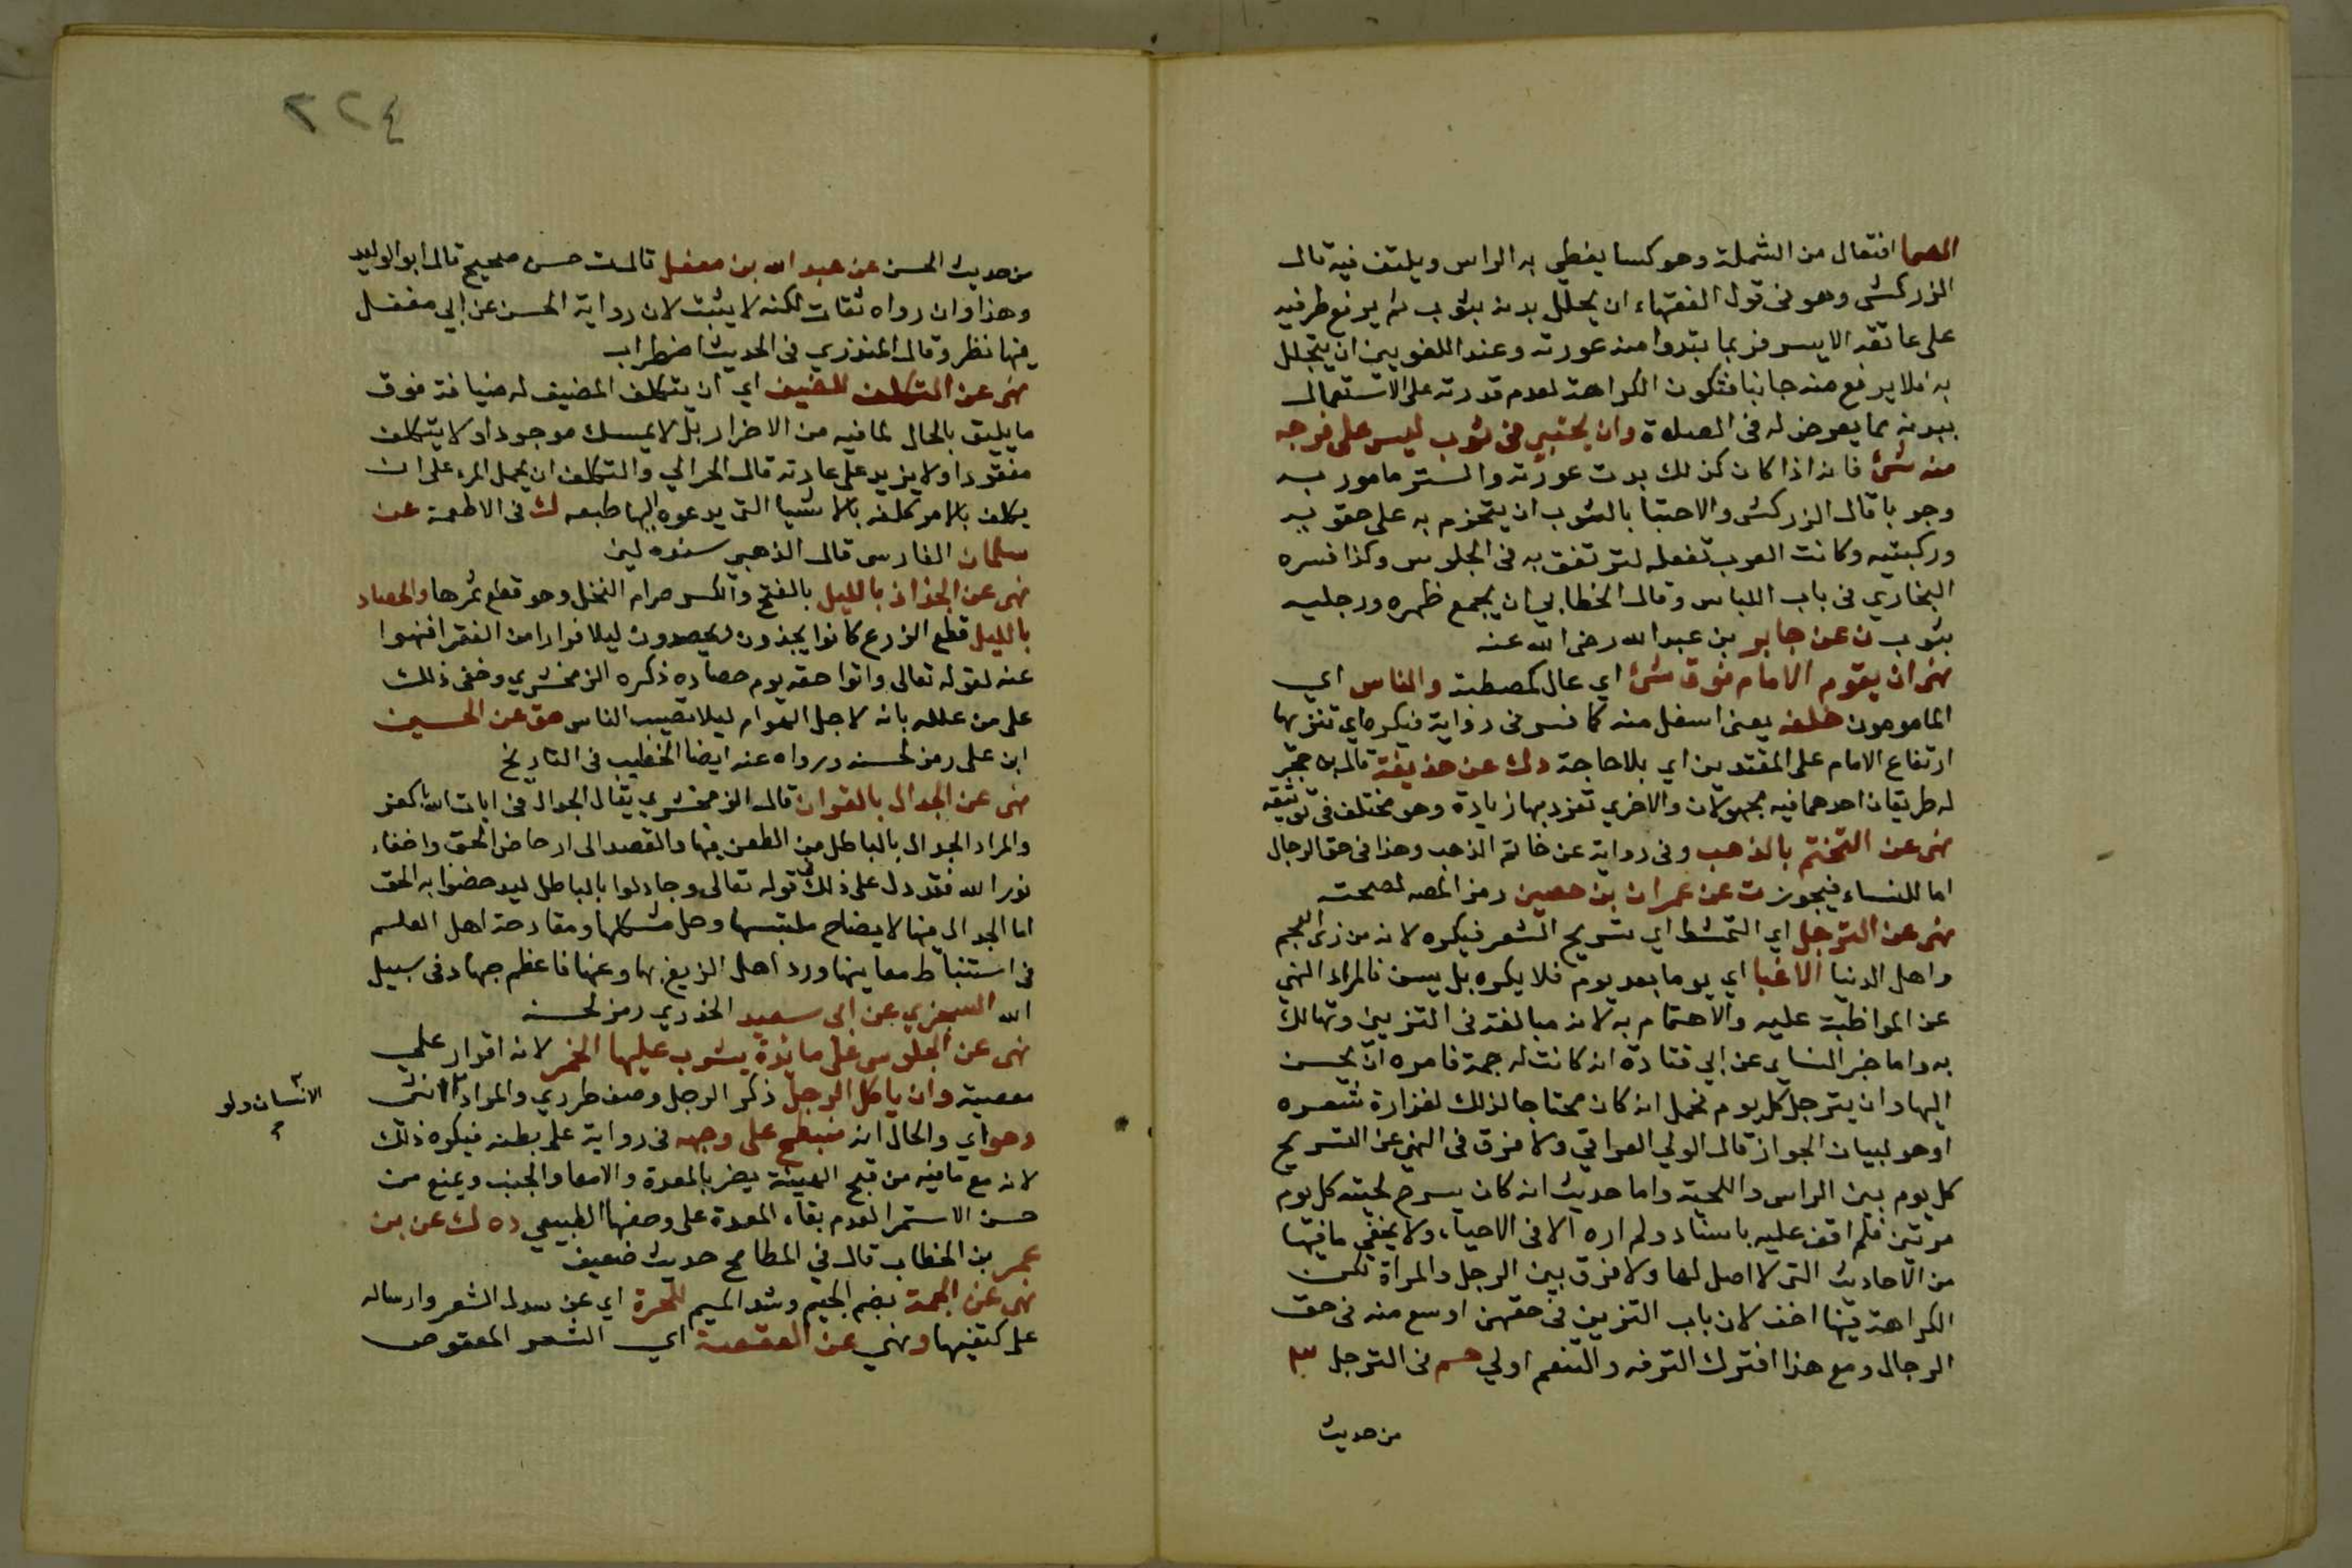 الصما افتعال من الشملة وهو كسا يغطي به الراس ويلتف فيه قال
الزركشى وهو فى قول الفقهاء ان يجلل بدنه بثوب ثم يرفع طرفيه
على عاتقه الايسر فربما بتدوا منه عورته وعند اللغويين ان يتجلل
به فلا يرفع منه جانبا فتكون الكراهة لعدم قدرته على الاستعمال
ببدنه بما يعرض له فى الصلاة وان يحتبي فى ثوب ليس على فرجه
منه شئ فانه اذا كان كذلك بدت عورته والستر مامور به
وجوبا قال الزركشى والاحتبا بالثوب ان يتحزم به على حقويه
وركبتيه وكانت العرب تفعله لترتفق به فى الجلوس وكذا فسره
البخاري فى باب اللباس وقال الخطابي ان يجمع ظهره ورجليه
بثوب ن عن جابر بن عبد الله رضى الله عنه
نهى ان يقوم الامام فوق شئ اي عال كمصطبة والناس اي
المامومون خلفه يعنى اسفل منه كما فسر فى رواية فيكره اي تنزيها
ارتفاع الامام على المقتدين اي بلا حاجة دك عن حذيفة قال بن حجر
له طريقان احدهما فيه مجهولان والاخرى تفرد بها زيادة وهو مختلف فى توثيقه
نهى عن التختم بالذهب وفى رواية عن خاتم الذهب وهذا فى حق الرجال
اما للنساء فيجوز ت عن عمران بن حصين رمز المص لصحته
نهى عن الترجل اي التمشط اي تسريح الشعر فيكره لانه من زى العجم
واهل الدنيا الا غبا اي يوما بعد يوم فلا يكره بل يسن فالمراد النهي
عن المواظبة عليه والاهتمام به لانه مبالغة فى التزيين وتهالك
به واما خبر النساي عن ابي قتادة انه كانت له جمة فامره ان يحسن
اليها وان يترجل كل يوم فحمل انه كان محتاجا لذلك لغزارة شعره
اوهو لبيان الجواز قال الولي العراقي ولا فرق فى النهي عن التسريح
كل يوم بين الراس واللحية واما حديث انه كان يسرح لحيته كل يوم
مرتين فلم اقف عليه باسناد ولم اره الا فى الاحياء ولا يخفى مافيها
من الاحاديث التى لا اصل لها ولا فرق بين الرجل والمراة لكن
الكراهة فيها اخف لان باب التزيين فى حقهن اوسع منه فى حق
الرجال ومع هذا افترك الترفه والتنعم اولي حم فى الترجل
من حديث
٢٢٤
من حديث الحسن عن عبد الله بن مغفل قال ت حسن صحيح قال ابو الوليد
وهذا وان رواه ثقات لكنه لا يثبت لان رواية الحسن عن ابي مغفل
فيها نظر وقال المنذري فى الحديث اضطراب
نهى عن التكلف للضيف اي ان يتكلف المضيف له ضيافة فوق
ما يليق بالحال لما فيه من الاضرار بل لا يمسك موجودا ولا يتكلف
مفقودا ولا يزيد على عادته قال الحرالي والتكلف ان يحمل المرء على ان
يكلف بالامر تكلفه بالاشيا التى يدعوه اليها طبعه ك فى الاطعمة عن
سلمان الفارسى قال الذهبي سنده لين
نهى عن الجذاذ بالليل بالفتح والكسر صرام النخل وهو قطع ثمرها والحصاد
بالليل قطع الزرع كانوا يجذون ويحصدون ليلا فرارا من الفقرا فنهوا
عنه لقوله تعالى واتوا حقه يوم حصاده ذكره الزمخشري وخفى ذلك
على من علله بانه لاجل الهوام ليلا تصيب الناس هق عن الحسين
ابن على رمز لحسنه ورواه عنه ايضا الخطيب فى التاريخ
نهى عن الجدال بالقران قال الزمخشري يقال الجدال فى ايات الله كفر
والمراد الجدال بالباطل من الطعن فيها والقصد الى ادحاض الحق واخفاء
نور الله فقد دل على ذلك قوله تعالى وجادلوا بالباطل ليدحضوا به الحق
اما الجدال فيها لايضاح ملتبسها وحل مشكلها ومقادحة اهل العلم
فى استنباط معاينها ورد اهل الزيغ بها وعنها فاعظم جهاد فى سبيل
الله السجزي عن ابى سعيد الخدري رمز لحسنه
نهى عن الجلوس على مايدة يشرب عليها الخمر لانه اقرار على
معصية وان ياكل الرجل ذكر الرجل وصف طردي والمراد انثى
الانسان ولو
وهو اي والحال انه منبطح على وجهه فى رواية على بطنه فيكره ذلك
لانه مع مافيه من قبح الهيئة يضر بالمعدة والامعا والجنب ويمنع من
حسن الاستمرا لعدم بقاء المعدة على وصفها الطبيعي ده ك عن بن
عمر بن الخطاب قال في المطامح حديث ضعيف
نهى عن الجمة بضم الجيم وشد الميم للحرة اي عن سدل الشعر وارساله
على كتفيها ونهي عن العقصة اي الشعر المعقوص